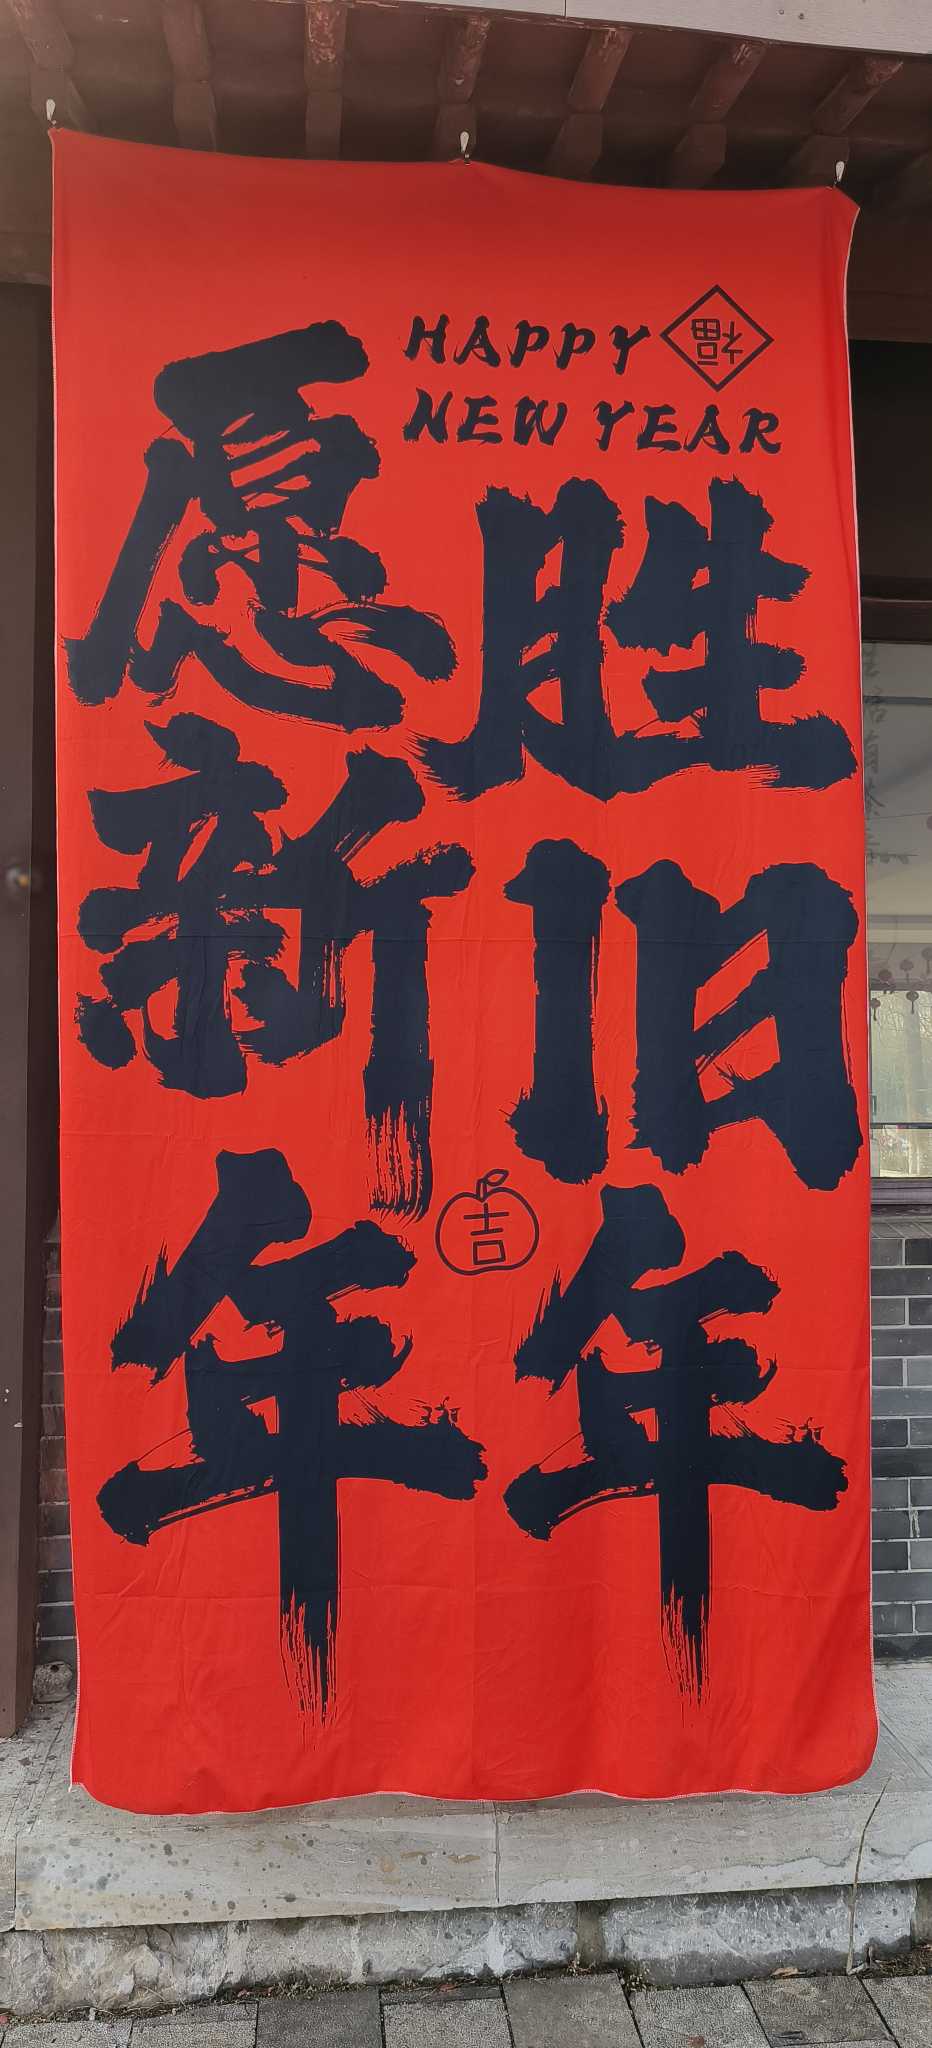 HAPPY 福
NEW YEAR
愿新年
胜旧年
吉